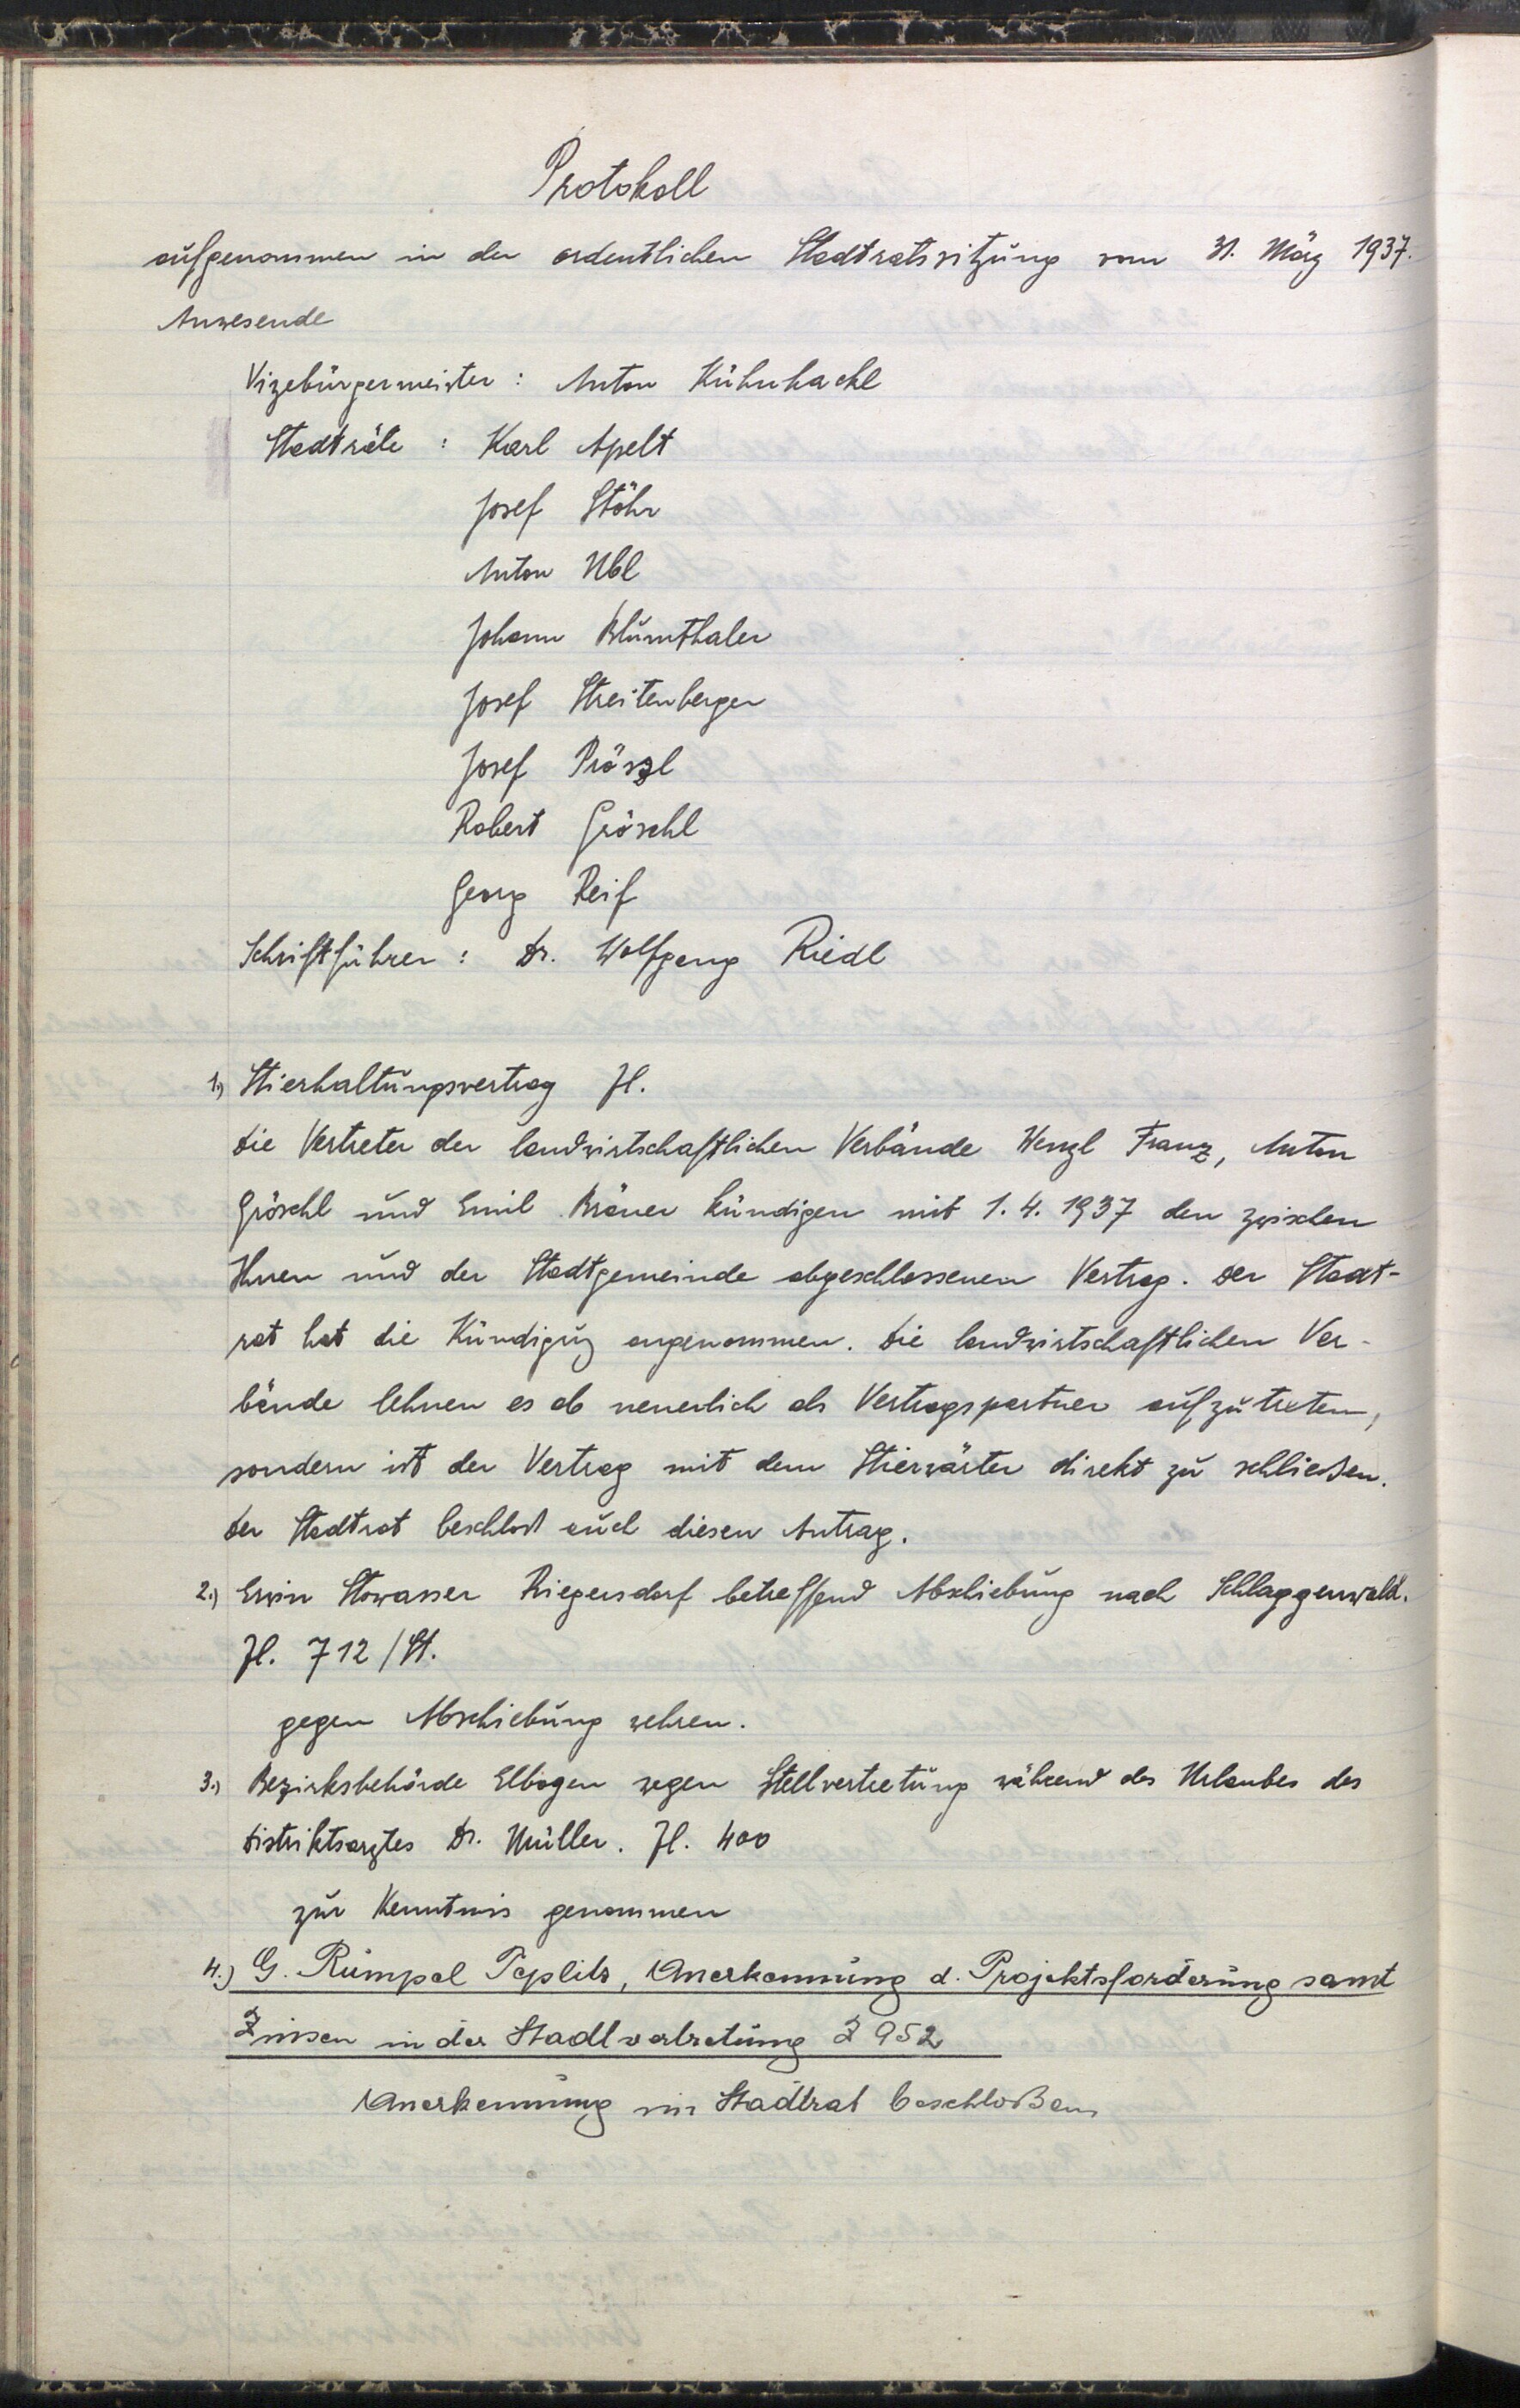 Protokoll
aufgenommen in der ordentlichen Stadtratssitzung vom 31. März 1937.
Anwesende
Vizebürgermeister : Anton Kühnhackl
Stadträte : Karl Apelt
Josef Stöhr
Anton Ubl
Johann Blumthaler
Josef Streitenberger
Josef Pröszl
Robert Gröschl
Georg Reif
Schriftführer : Dr. Wolfgang Riedl
1.) Stierhaltungsvertrag Zl.
Die Vertreter der landwirtschaftlichen Verbände Wenzl Franz, Anton
Gröschl und Emil Bräuer kündigen mit 1. 4. 1937 den zwischen
Ihnen und der Stadtgemeinde abgeschlossenen Vertrag. Der Stadt-
rat hat die Kündigug angenommen. Die landwirtschaftlichen Ver-
bände lehnen es ab neuerlich als Vertragspartner aufzutreten,
sondern ist der Vertrag mit dem Stierwärter direkt zu schließen.
Der Stadtrat beschloß auch diesen Antrag.
2.) Erwin Stowasser Riegersdorf betreffend Abschiebung nach Schlaggenwald.
Zl. 712 / St.
gegen Abschiebung wehren.
3.) Bezirksbehörde Elbogen wegen Stellvertretung während des Urlaubes des
Distriktsarztes Dr. Müller. Zl. 400
zur Kenntnis genommen
4.) G. Rumpel Teplitz, Anerkennung d. Projektsforderung samt
Zinsen in der Stadtvertretung Z 952
Anerkennung im Stadtrat beschloßen